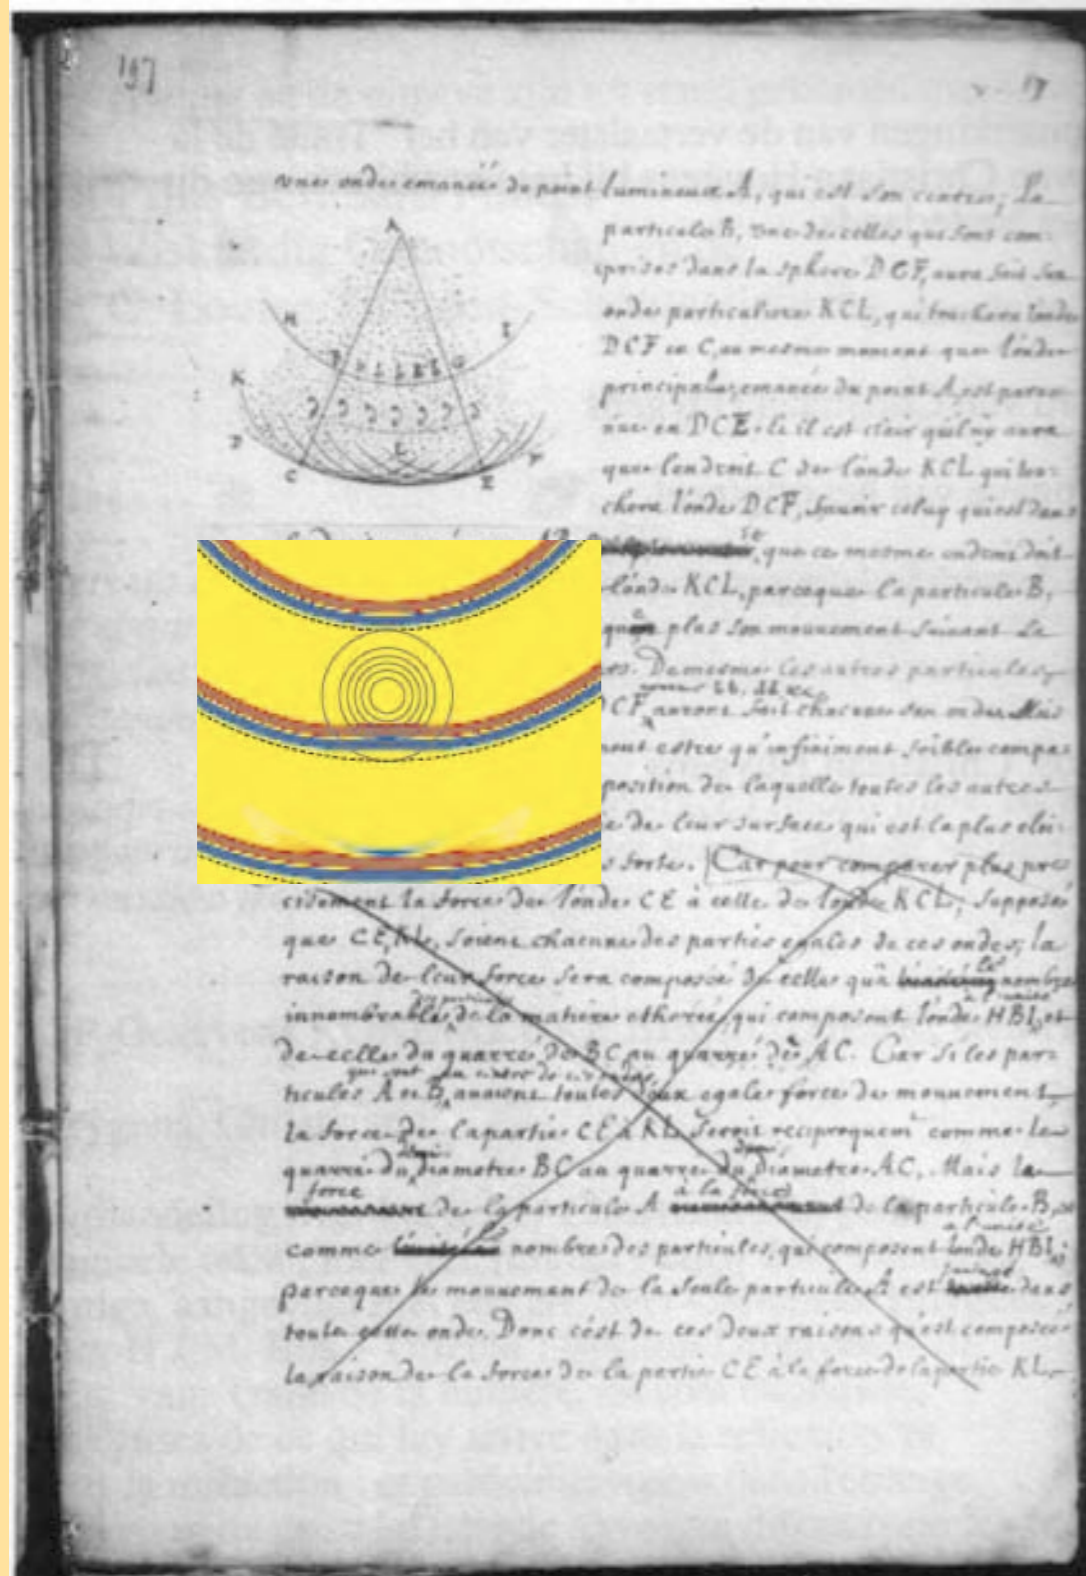 197
17
une onde emanée du point lumineux A, qui est son centre; La
particule B, une de celles qui sont com-
prises dans la sphere DCF, aura fait son
onde particuliere KCL, qui touchera l'onde
DCF en C, au mesme moment que l'onde
principale, emanée du point A, est parve-
nue en DCE. et il est clair qu'il n'y aura
que l'endroit C de l'onde KCL qui tou-
chera l'onde DCF, sçavoir celuy qui est dans
A
H I
B b b b b G
K
d d d d d d
D L F
C E
que ce mesme
l'onde KCL, parceque la particule B,
plus son mouvement suivant la
De mesme les autres particules
bb, dd &c.
DCF, auront fait chacune son onde. Mais
estre qu'infiniment foible compa-
position de laquelle toutes les autres
de leur surface qui est la plus eloi-
forte. Car pour comparer plus pre
cisement la force de l'onde CE à celle de l'onde KCL, supposé
que CE, KL, soient chacune des parties egales de ces ondes; la
raison de leur force sera composée de celle qu'a nombre
à l'unité
innombrable de la matiere etherée, qui composent l'onde HBI, et
de celle du quarré de BC au quarré de AC. Car si les par-
qui sont au centre de
ticules A et B, avoient toutes deux egale force de mouvement,
la force de la partie CE à KL seroit reciproquemt comme le
quarré du diametre BC au quarré du diametre AC. Mais la
force à la force
de la particule A de la particule B, est
à l'unité
comme nombre des particules, qui composent l'onde HBI,
parceque le mouvement de la seule particule A est dans
toute cette onde. Donc c'est de ces deux raisons qu'est composée
la raison de la force de la partie CE à la force de la partie KL